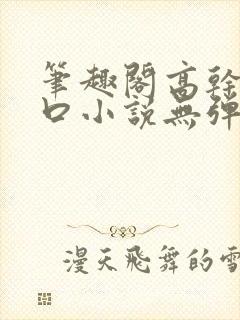 筆趣閣高幹
口小説無彈
漫天飛舞的雪